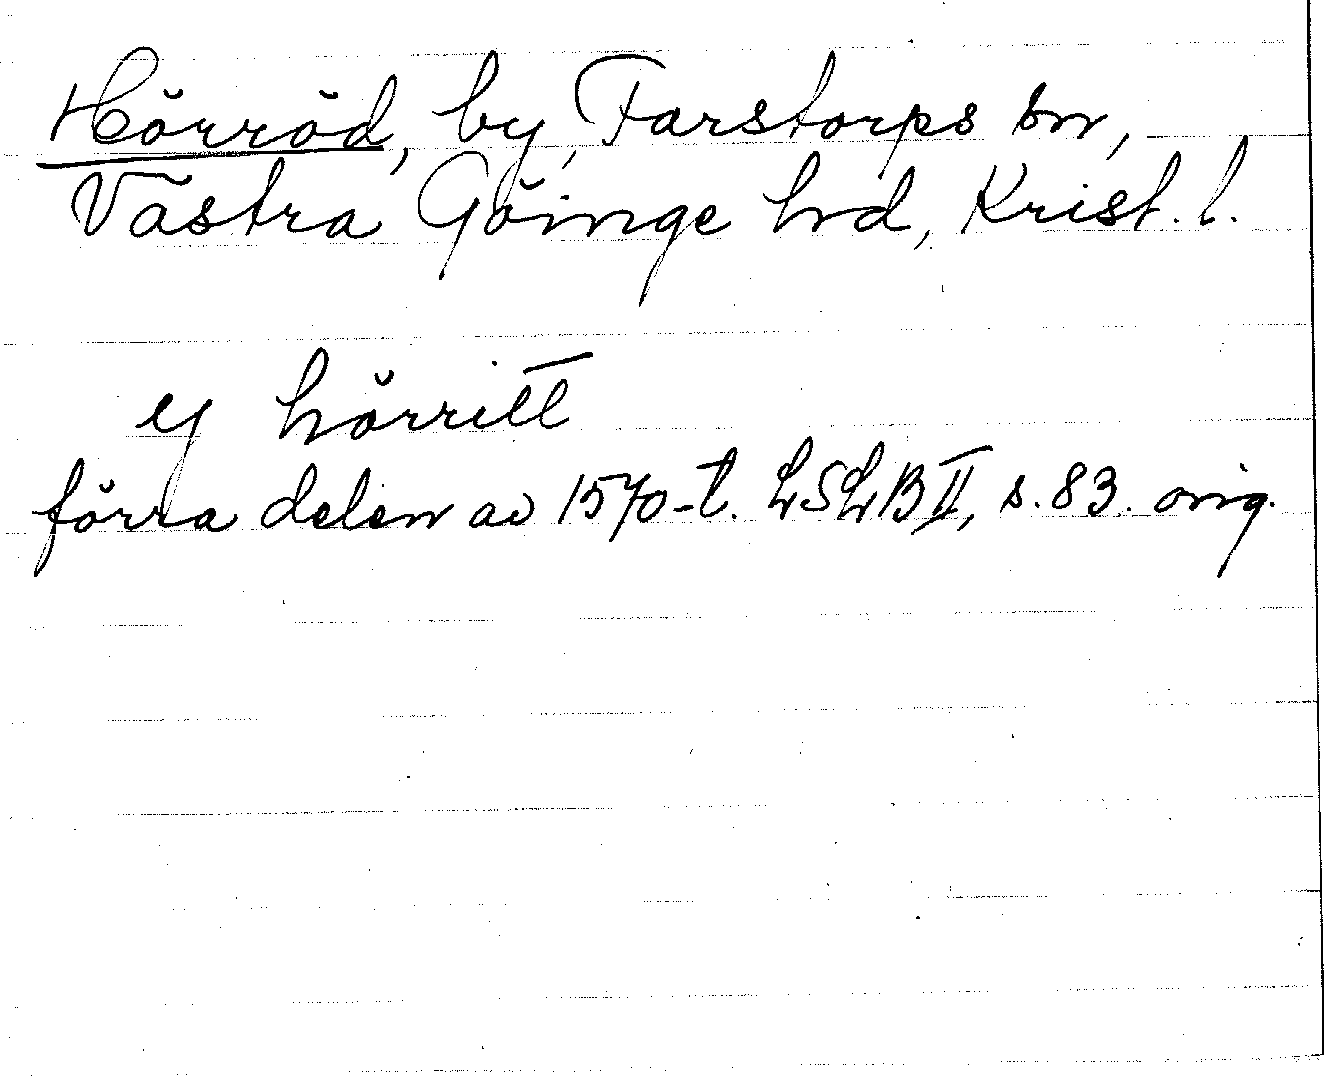 Hörröd, by, Farstorps sn,
Västra Göinge hd, Krist. l.
y hörritt
förra delen av 1570-t. LSLB II, s. 83. orig.